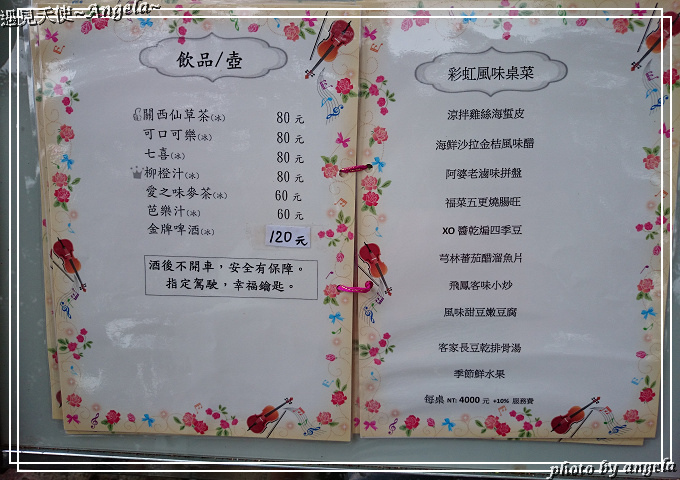 遇見天使~Angela~
飲品/壺
關西仙草茶(冰) 80 元
可口可樂(冰) 80 元
七喜(冰) 80 元
柳橙汁(冰) 80 元
愛之味麥茶(冰) 60 元
芭樂汁(冰) 60 元
金牌啤酒(冰) 120元
酒後不開車，安全有保障。
指定駕駛，幸福鑰匙。
彩虹風味桌菜
涼拌雞絲海蜇皮
海鮮沙拉金桔風味醋
阿婆老滷味拼盤
福菜五更燒腸旺
XO 醬乾煸四季豆
芎林蕃茄醋溜魚片
飛鳳客味小炒
風味甜豆嫩豆腐
客家長豆乾排骨湯
季節鮮水果
每桌 NT: 4000 元 +10% 服務費
photo by angela